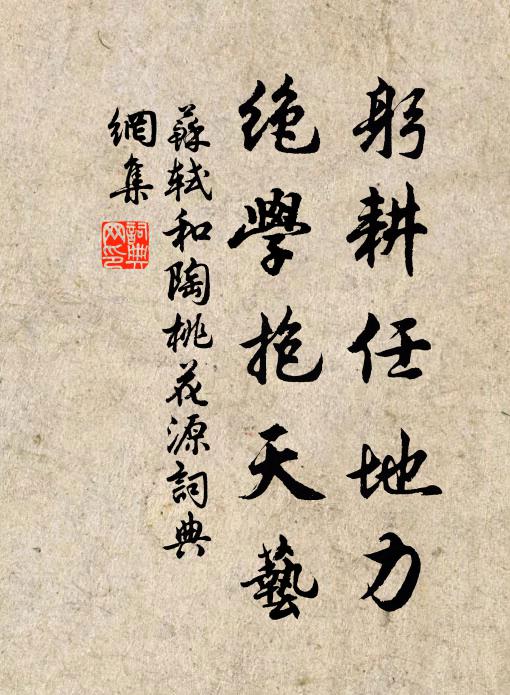 躬耕任地力
绝學抱天藝
蘇軾和陶桃花源詞典
網集
詞典
网印